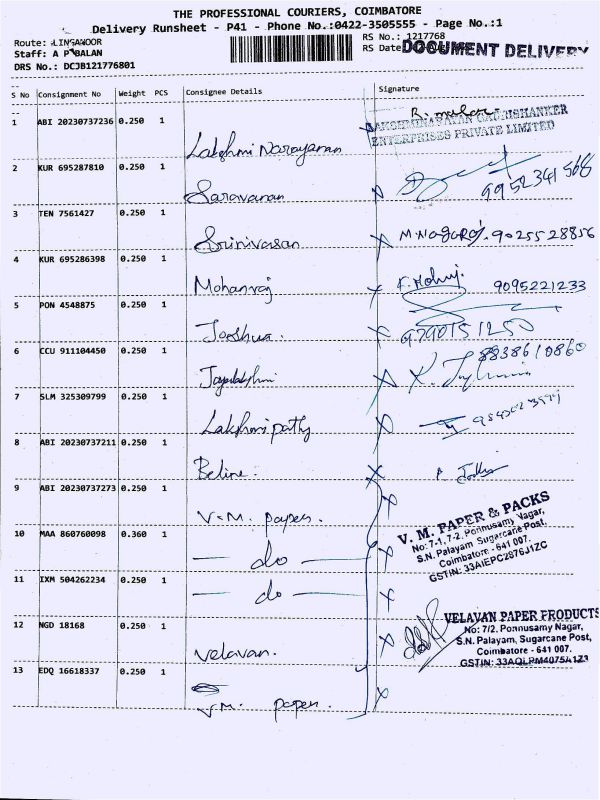 THE PROFESSIONAL COURIERS, COIMBATORE
Delivery Runsheet - P41 - Phone No.:0422-3505555 - Page No.:1
Route: LINGANOOR
RS No.: 1217768
Staff: A P BALAN
RS Date
DOCUMENT DELIVERY
DRS No.: DCJB121776801
S No Consignment No Weight PCS Consignee Details Signature
1 ABI 20230737236 0.250 1 Lakshmi Narayanan
ENTERPRISES PRIVATE LIMITED
2 KUR 695287810 0.250 1 Saravanan 9952341566
3 TEN 7561427 0.250 1 Srinivasan M. Nagaraj. 9025528856
4 KUR 695286398 0.250 1 Mohanraj 9095221233
5 PON 4548875 0.250 1 Joshua. 9790151250
6 CCU 911104450 0.250 1 Jayalakshmi 8838610860
7 SLM 325309799 0.250 1 Lakshmipathy
8 ABI 20230737211 0.250 1 Beline.
9 ABI 20230737273 0.250 1 V.M. paper.
10 MAA 860760098 0.360 1 — do —
11 IXM 504262234 0.250 1 — do —
V. M. PAPER & PACKS
No: 7-1, 7-2, Ponnusamy Nagar,
S.N. Palayam, Sugarcane Post,
Coimbatore - 641 007.
GSTIN: 33AIEPC2876J1ZC
12 NGD 18168 0.250 1 Velavan.
VELAVAN PAPER PRODUCTS
No: 7/2, Ponnusamy Nagar,
S.N. Palayam, Sugarcane Post,
Coimbatore - 641 007.
GSTIN: 33AQLPM4075A1Z3
13 EDQ 16618337 0.250 1 V.M. paper.